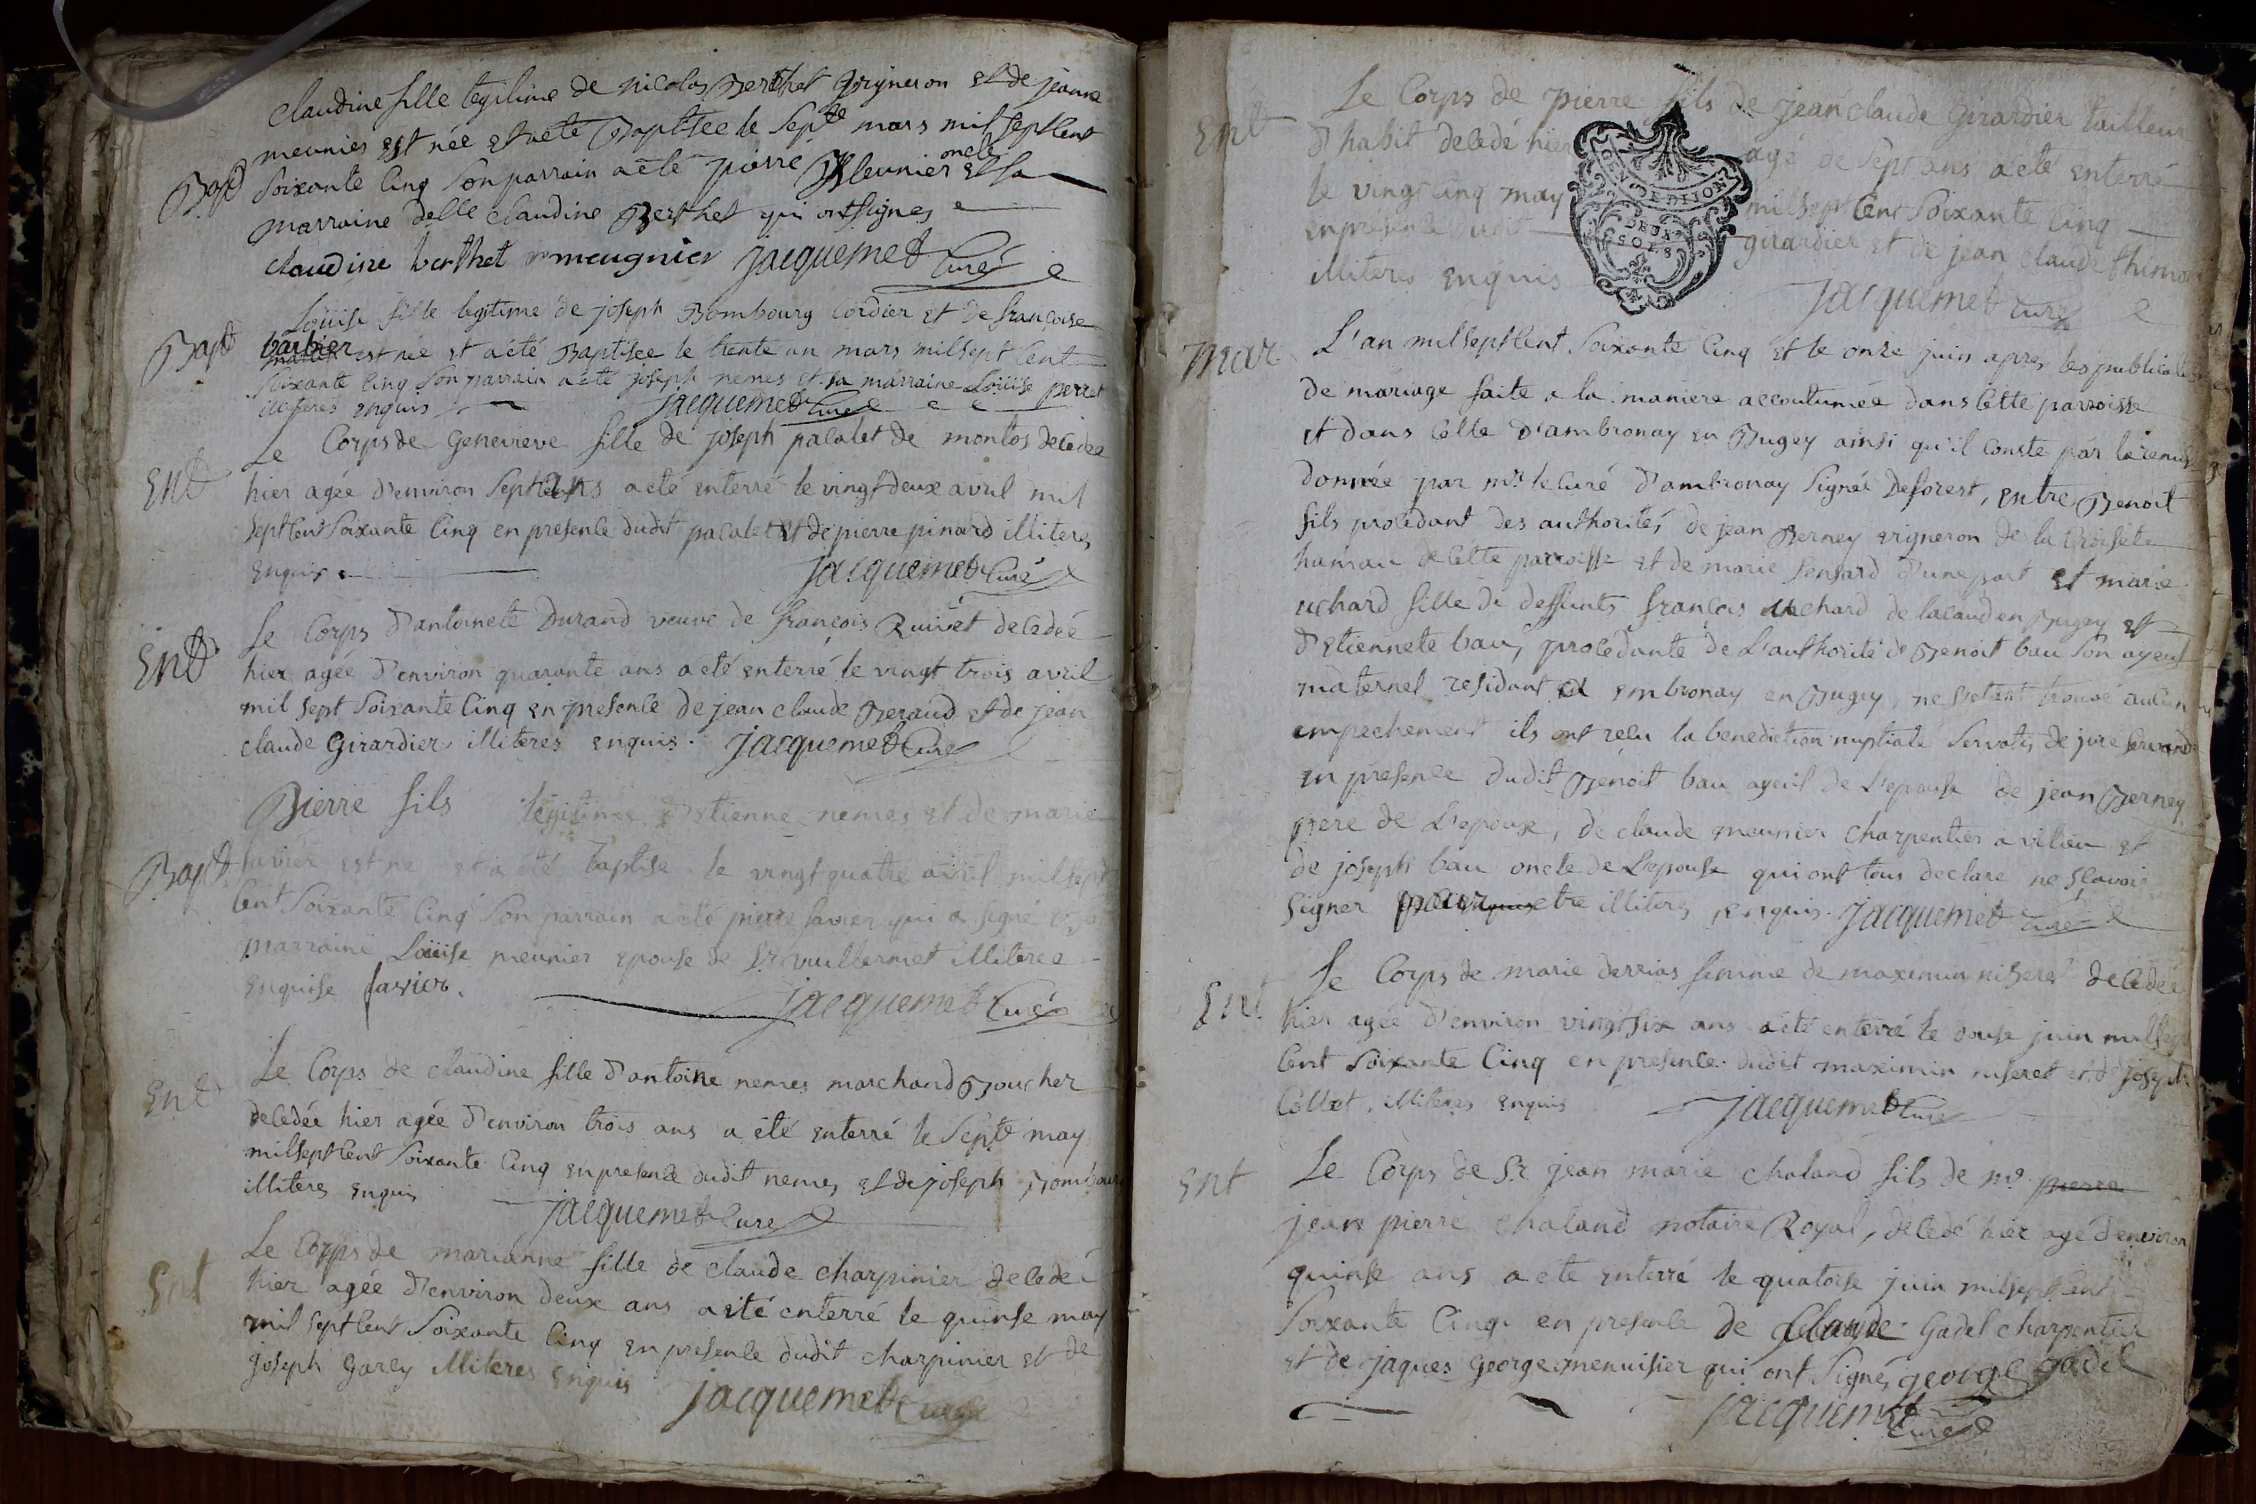 claudine fille legitime de nicolas Berthet vigneron et de jeanne
meunier est née et a été Baptisée le sept.e mars mil sept cent
Bap.t soixante cinq son parrain a eté pierre Meunier oncle et sa
marraine delle claudine Berthet qui ont signes
claudine berthet meugnier jacquemet curé
Loüise fille legitime de joseph Bombourg cordier et de françoise
Bap.t barbier est née et a été Baptisee le trente un mars mil sept cent
soixante cinq son parrain a eté joseph nemes et sa marraine Loüise perret
illiteres enquis jacquemet curé
Le Corps de Genevieve fille de joseph pacalet de montos decedee
Ent hier agée d'environ sept ans a eté enterré le vingt deux avril mil
sept cent soixante cinq en presence dudit pacalet et de pierre pinard illiteres
enquis jacquemet curé
Le Corps d'antoinete Durand veuve de françois Ruivet decedeé
Ent hier agée d'environ quarante ans a eté enterré le vingt trois avril
mil sept soixante cinq en presence de jean claude Beraud et de jean
claude Girardier illiteres enquis. jacquemet curé
Pierre fils legitime d'etienne nemes et de marie
Bap.t favier est né et a été baptisé le vingt quatre avril mil sept
cent soixante cinq son parrain a eté pierre favier qui a signé et sa
marraine Loüise meunier epouse de Sr vuillermet illiteree
enquise favier. jacquemet curé
Le Corps de claudine fille d'antoine nemes marchand Boucher
Ent decedée hier agée d'environ trois ans a eté enterré le sept.e may
mil sept cent soixante cinq en presence dudit nemes et de joseph Bombourg
illiteres enquis jacquemet curé
Le Corps de marianne fille de claude charpinier decedeé
Ent hier agée d'environ deux ans a eté enterré le quinse may
mil sept cent soixante cinq en presence dudit charpinier et de
joseph Garey illiteres enquis jacquemet curé
Le Corps de pierre fils de jean claude Girardier tailleur
Ent d'habit decedé hier agé de sept ans a eté enterré
le vingt cinq may mil sept cent soixante cinq
en presence dudit girardier et de jean claude
illiteres enquis jacquemet curé
GEN. DEDIJON.
DEUX
SOLS
Mar. L'an mil sept cent soixante cinq et le onze juin apres les publications
de mariage faite a la maniere accoutumée dans cette parroisse
et dans celle d'ambronay en Bugey ainsi qu'il conste par la remise
donnée par mr. le curé d'ambronay signée Deforest, entre Benoit
fils procedant des authorités de jean Berney vigneron de la Croisete
hamau de cette parroisse et de marie d'une part et marie
uchard fille de deffunts françois uchard de en Bugey et
d'etiennete bau, procedante de l'authorité de Benoit bau son ayeul
maternel residant a embronay en Bugey, ne s'etant trouvé aucun
empechement ils ont reçu la benediction nuptiale servatis de jure servandis
en presence dudit Benoit bau ayeul de l'epouse de jean Berney
pere de l'epoux, de claude meunier charpentier a vilieu et
de joseph bau oncle de l'epouse qui ont tous declaré ne sçavoir
signer pour etre illiteres enquis. jacquemet curé
Le Corps de marie derrias femme de maximin niseret decedée
Ent hier agée d'environ vingt six ans a eté enterré le douse juin mil sept
cent soixante cinq en presence dudit maximin niseret et de joseph
Collet, illiteres enquis jacquemet curé
Ent Le Corps de Sr jean marie chaland fils de me. pierre
jean pierre chaland notaire Royal, decedé hier agé d'environ
quinse ans a eté enterré le quatorse juin mil sept cent
soixante cinq en presence de claude Gadel charpentier
et de jaques George menuisier qui ont signés george gadel
jacquemet curé